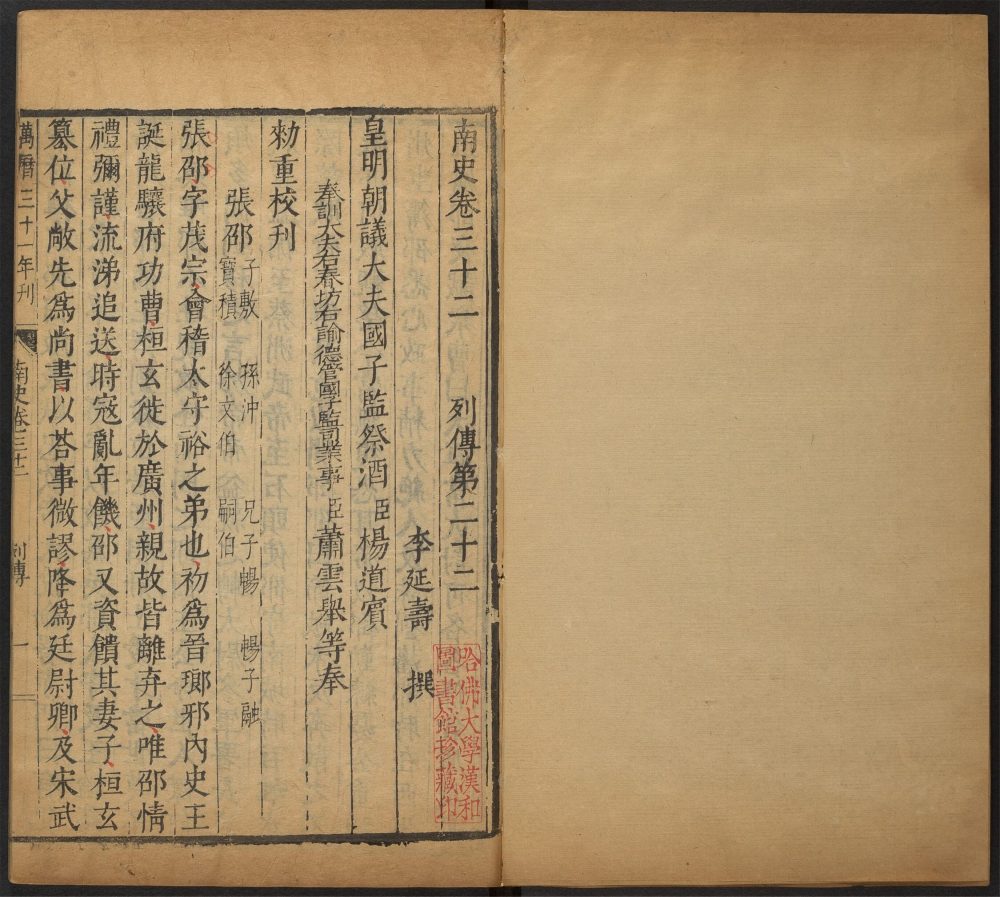 南史卷三十二　列傳第二十二
李延壽　撰
皇明朝議大夫國子監祭酒臣楊道賓
奉訓大夫右春坊右諭德管國子監司業事臣蕭雲舉等奉
勑重校刊
張邵子敷　孫沖　兄子暢　暢子融
寳積　徐文伯　嗣伯
張邵字茂宗會稽太守裕之弟也初爲晉瑯邪內史王
誕龍驤府功曹桓玄徙於廣州親故皆離弃之唯邵情
禮彌謹流涕追送時寇亂年饑邵又資饋其妻子桓玄
簒位父敞先爲尚書以荅事微謬降爲廷尉卿及宋武
萬曆三十一年刊
南史卷三十二
列傳
一
哈佛大學漢和
圖書館珍藏印